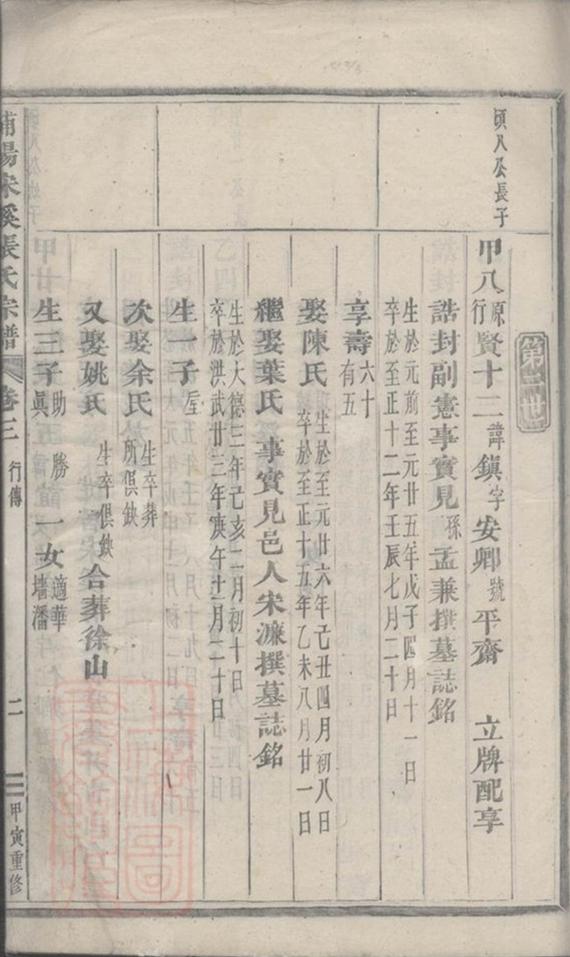 第三世
頃八公長子
甲八原行賢十二諱鎮字安卿號平齋　立牌配享
誥封副憲事實見孫孟兼撰墓誌銘
生於元前至元廿五年戊子四月十一日
卒於至正十二年壬辰七月二十日
享壽六十有五
娶陳氏生於至元廿六年己丑四月初八日
卒於至正十五年乙未八月廿一日
繼娶葉氏　事實見邑人宋濂撰墓誌銘
生於大德三年己亥二月初十日
卒於洪武廿三年庚午十二月二十日
生一子屋
次娶余氏生卒葬所俱缺
又娶姚氏生卒俱缺合葬徐山
生三子助勝真一女適華墻潘
浦陽宋溪張氏宗譜　卷三　行傳　二　甲寅重修